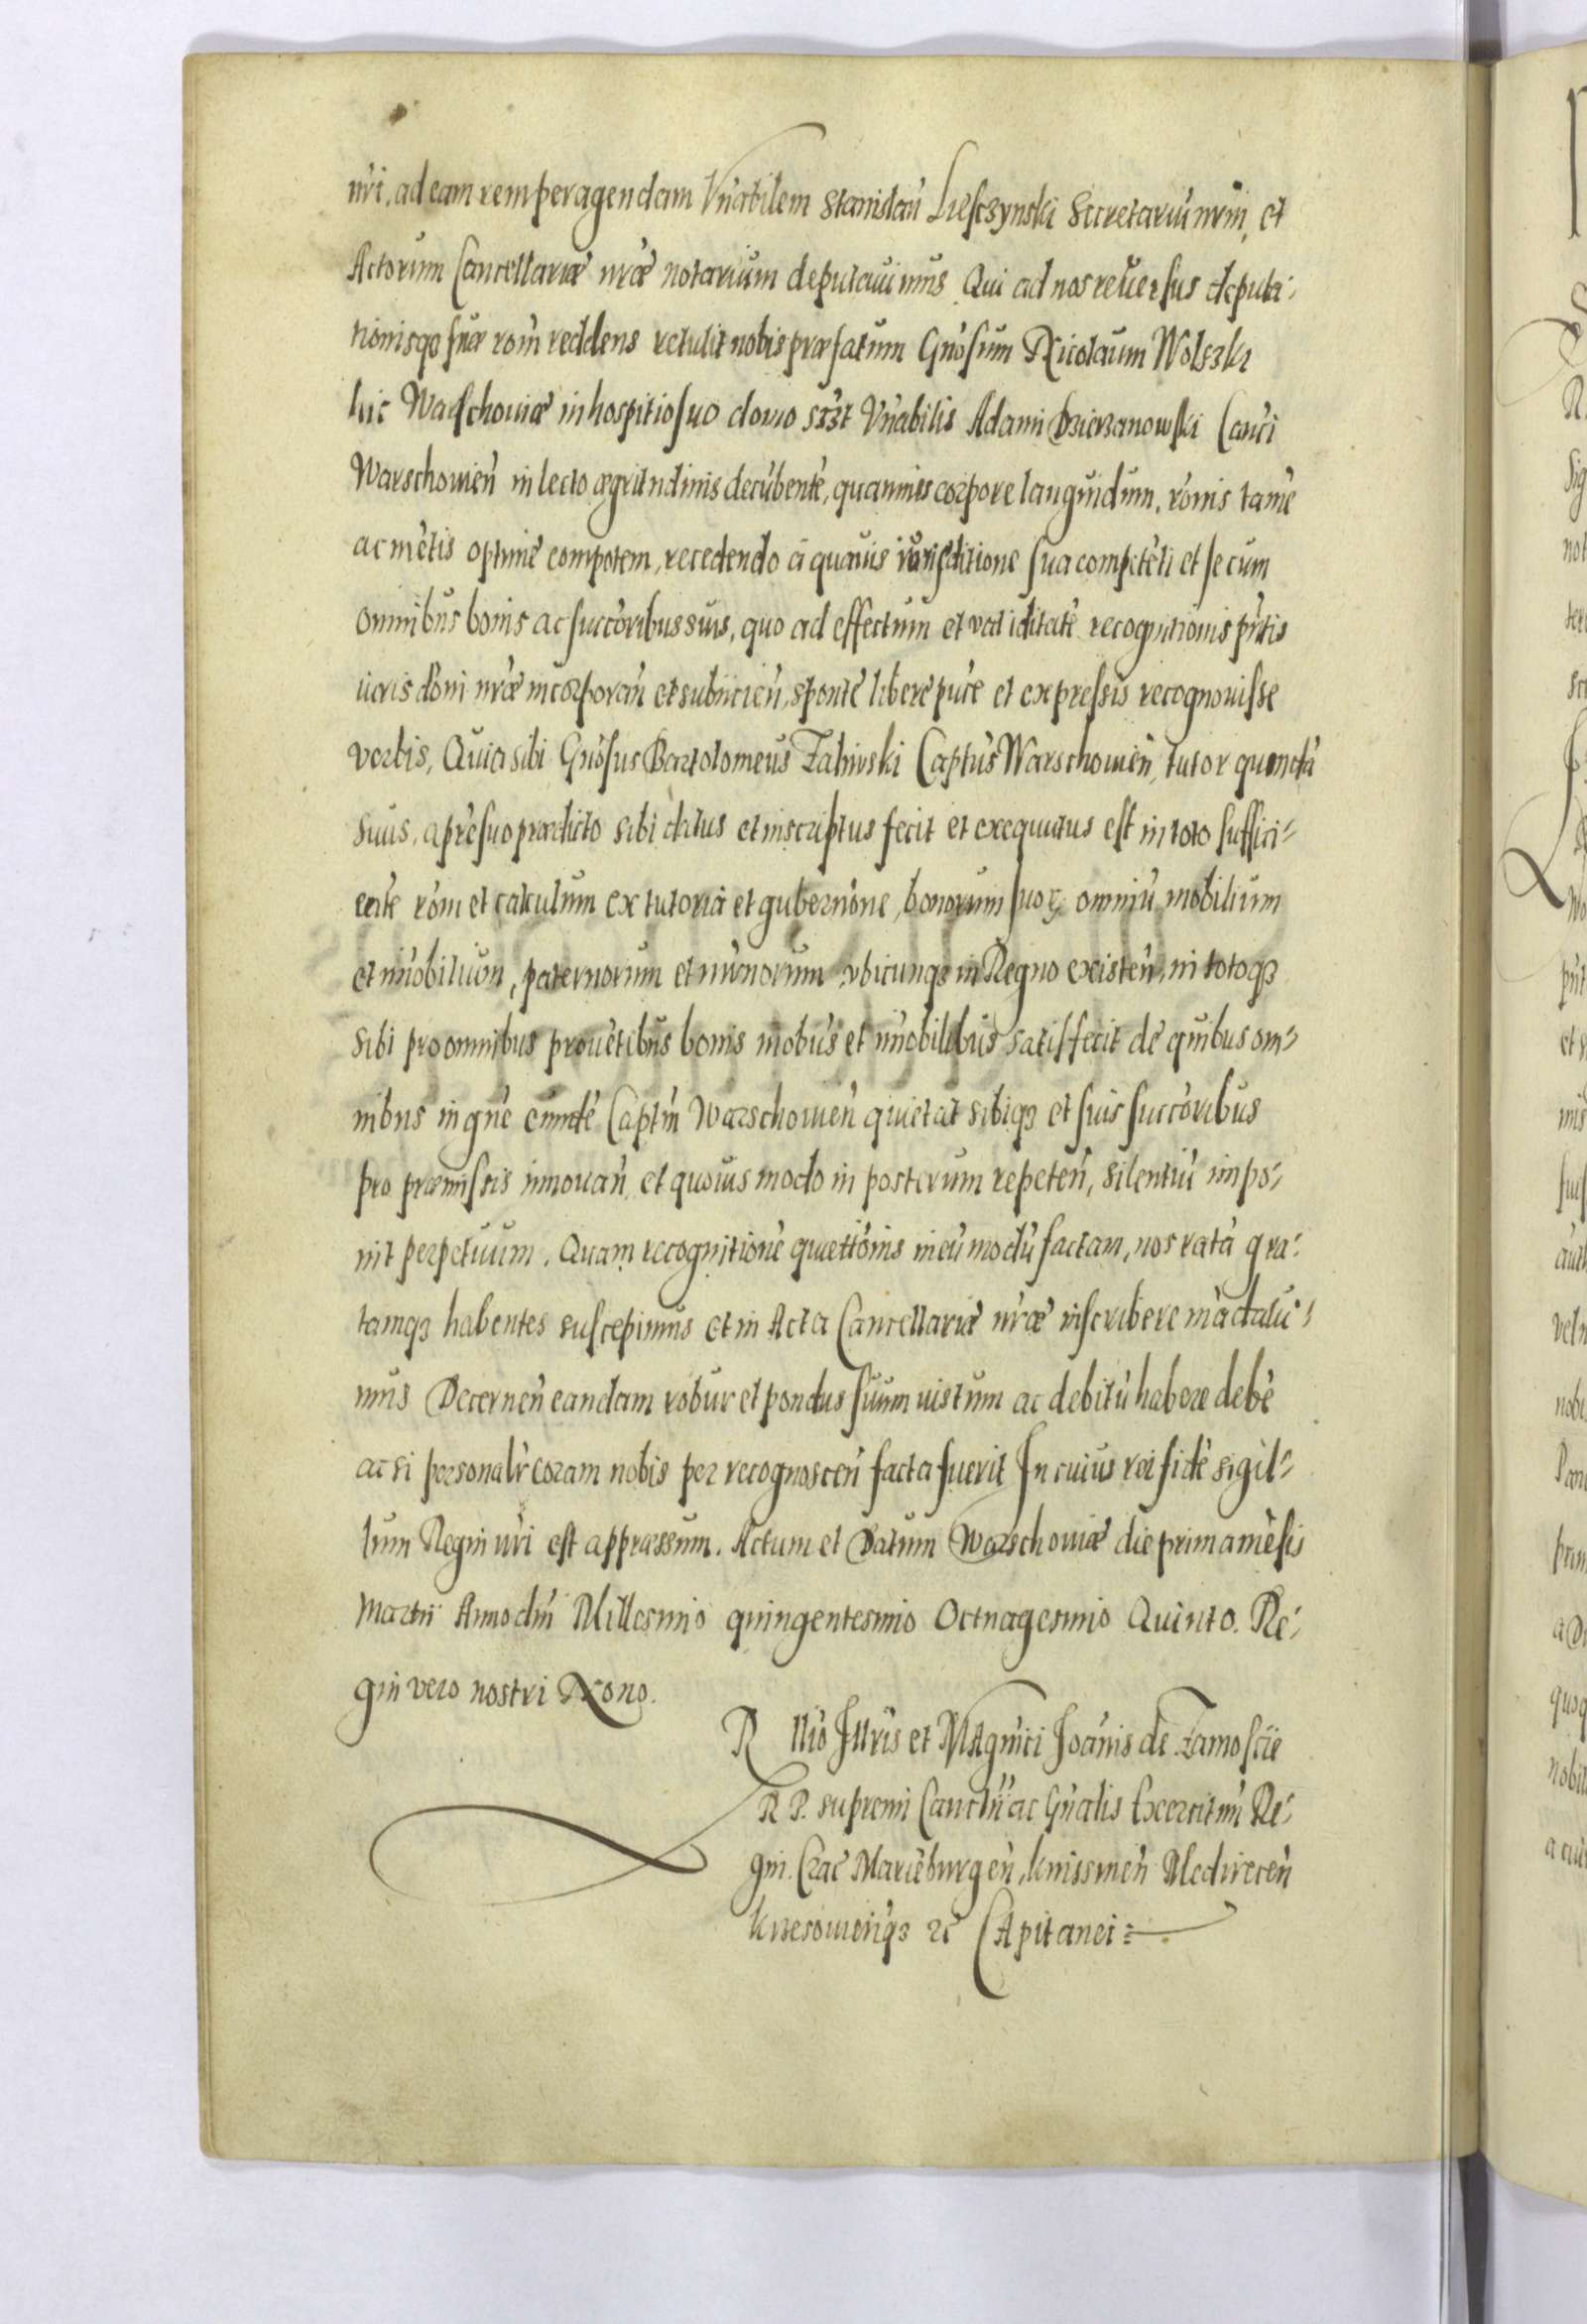 nri, ad eam rem peragendam Vnabilem Stanislaū Liesczynski Secretariū nrm̄, et
Actorum Cancellariæ nræ notarium deputauimus Qui ad nos reuersus deputa-
tionisq3 suæ rom̄ reddens retulit nobis præfatum Gnosum Nicolaum Wolszki
hic Warschouiæ in hospitio suo domo Vnabilis Adami Dzierzanowski Canci
Warschouien̄ in lecto ægritudinis decūbentē, quamuis corpore languidum, ronis tamē
ac mētis optimē compotem, recedendo à quauis iurisditione sua competēti et se cum
omnibus bonis ac succoribus suis, quo ad effectum et validitatē recognitionis pn̄tis
iuris doni nræ incorporan̄ et subiicien̄, spontē liberē purē et expressis recognouisse
verbis, Quia sibi Gnosus Bartolomeus Zalinski Captus Warschouien̄, tutor quondā
suus, a prē suo prædicto sibi datus et inscriptus fecit et exequutus est in toto suffici-
entē rom̄ et calculum ex tutoria et gubernōne, bonorum suor omniū mobilium
et im̄obilium, paternorum et mr̄norum vbicunq3 in Regno existen̄, in totoq3
sibi pro omnibus prouētibus bonis mobūs et im̄obilibus satisfecit de quibus om-
nibus in gn̄e eundē Captm̄ Warschouien̄ quietat sibiq3 et suis succoribus
pro præmissis innouan̄ et quouis modo in posterum repeten̄, silentiū impo-
nit perpetuum. Quam recognitionē quiettōnis in eū modū factam, nos ratā gra-
tamq3 habentes suscepimus et in Acta Cancellariæ nræ inscribere mādaui-
mus Decernen̄ eandam robur et pondus suum iustum ac debitū habere debē
ac si personalr coram nobis per recognoscen̄ facta fuerit In cuius rei fidē sigil-
lum Regni nri est appræssum. Actum et Datum Warschouiæ die prima mēsis
Martii Anno dn̄i Millesimo quingentesimo Octuagesimo Quinto. Re-
gni vero nostri Nono.
R llio Illris et Magnici Joānis de Zamoscie
R P. supremi Cancrii ac Gnalis Exercituū Re-
gni. Crac Marieburgen̄, Knissinen̄ Medirecen̄
Krzesouienq3 zc Capitanei